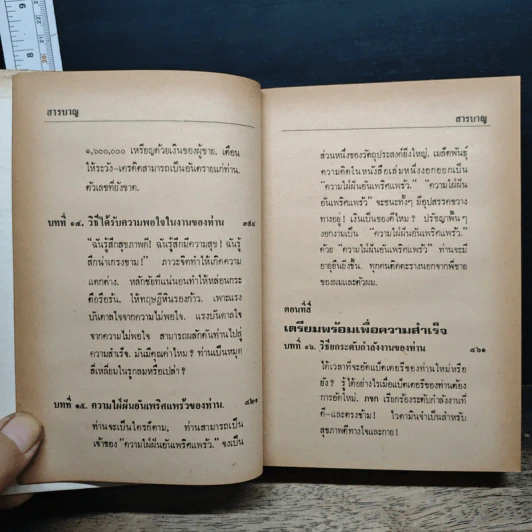 สารบาญ
๑,๖๐๐,๐๐๐ เหรียญด้วยเงินของผู้ขาย. เตือน
ให้ระวัง-เครดิตสามารถเป็นอันตรายแก่ท่าน.
ตัวเลขที่ยังขาด.
บทที่ ๑๔. วิธีได้รับความพอใจในงานของท่าน ๓๙๔
"ฉันรู้สึกสุขภาพดี! ฉันรู้สึกมีความสุข! ฉันรู้
สึกน่าเกรงขาม!" ภาวะจิตทำให้เกิดความ
แตกต่าง. หลักชัยที่แน่นอนทำให้หล่อนกระ
ตือรือร้น. ให้ทฤษฎีหินรองก้าว. เพาะแรง
บันดาลใจจากความไม่พอใจ. แรงบันดาลใจ
จากความไม่พอใจ สามารถผลักดันท่านไปสู่
ความสำเร็จ. มันมีคุณค่าไหม? ท่านเป็นหมุด
สี่เหลี่ยมในรูกลมหรือเปล่า?
บทที่ ๑๕. ความใฝ่ฝันอันเพริศแพร้วของท่าน. ๔๒๑
ท่านจะเป็นใครก็ตาม, ท่านสามารถเป็น
เจ้าของ "ความใฝ่ฝันอันเพริศแพร้ว." จงเป็น
สารบาญ
ส่วนหนึ่งของวัตถุประสงค์ยิ่งใหญ่. เมล็ดพันธุ์
ความคิดในหนังสือเล่มหนึ่งงอกออกเป็น
"ความใฝ่ฝันอันเพริศแพร้ว." "ความใฝ่ฝัน
อันเพริศแพร้ว" จะชนะทั้งๆ มีอุปสรรคขวาง
ทางอยู่! เงินเป็นของดีไหม? ปรัชญาพื้นๆ
งอกงามเป็น "ความใฝ่ฝันอันเพริศแพร้ว."
ด้วย "ความใฝ่ฝันอันเพริศแพร้ว" ท่านจะมี
อายุยืนยิ่งขึ้น. ทุกคนติดตะรางนอกจากพี่ชาย
ของผมและตัวผม.
ตอนที่สี่
เตรียมพร้อมเพื่อความสำเร็จ
บทที่ ๑๖. วิธียกระดับกำลังงานของท่าน ๔๖๑
ได้เวลาที่จะอัดแบ็ตเตอรี่ของท่านใหม่หรือ
ยัง? รู้ได้อย่างไรเมื่อแบ็ตเตอรี่ของท่านต้อง
การอัดใหม่. ภจก เรียกร้องระดับกำลังงานที่
ดี-และตรงข้าม! ไวตามินจำเป็นสำหรับ
สุขภาพดีทางใจและกาย!
8
9
20